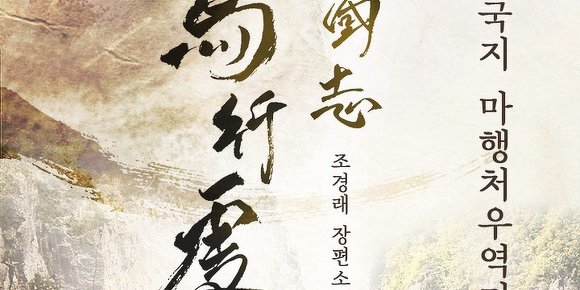 국지 마행처우역
國志
조경래 장편소
馬行處